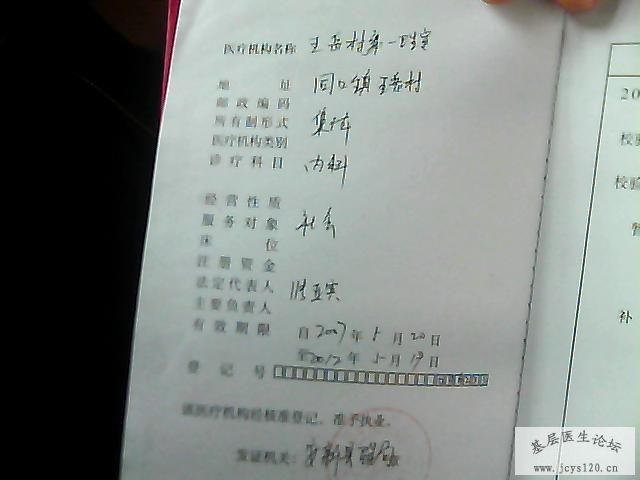 医疗机构名称 王岳村第一
地 址 同口镇王岳村
邮政编码
所有制形式 集体
医疗机构类别
诊疗科目 内科
经营性质
服务对象 社会
床 位
注册资金
法定代表人
主要负责人
有效期限 自2007年5月20日
至2012年5月19日
登 记 号
该医疗机构经核准登记，准予执业。
发证机关：安新县
20
校验
校验
暂
补
基层医生论坛
www.jcys120.cn